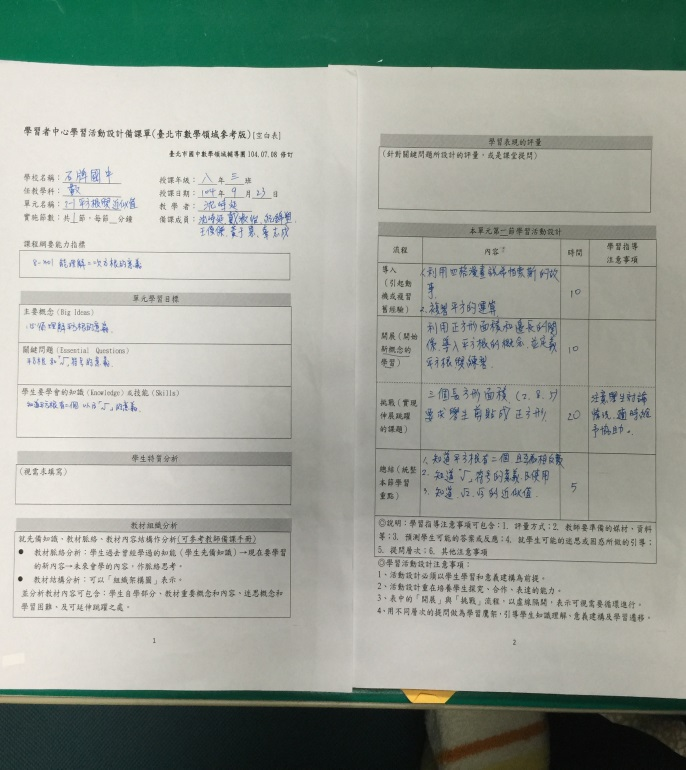 學習者中心學習活動設計備課單(臺北市數學領域參考版)[空白表]
臺北市國中數學領域輔導團 104.07.08 修訂
學校名稱：石牌國中
授課年級：八 年 三 班
任教學科：數
授課日期：104年 9 月 23 日
單元名稱：2-1 平方根與近似值
教 學 者：
實施節數：共1節，每節 分鐘
備課成員：
課程綱要能力指標
8-n-01 能理解二次方根的意義
單元學習目標
主要概念 (Big Ideas)
關鍵問題 (Essential Questions)
平方根 和「√」符號的意義.
學生要學會的知識 (Knowledge) 或技能 (Skills)
知道平方根有二個 以及「√」的意義.
學生特質分析
(視需求填寫)
教材組織分析
就先備知識、教材脈絡、教材內容結構作分析(可參考教師備課手冊)
● 教材脈絡分析：學生過去曾經學過的知能 (學生先備知識)→現在要學習
的新內容→未來會學的內容，作脈絡思考。
● 教材結構分析：可以「組織架構圖」表示。
並分析教材內容可包含：學生自學部分、教材重要概念和內容、迷思概念和
學習困難、及可延伸跳躍之處。
1
學習表現的評量
(針對關鍵問題所設計的評量，或是課堂提問)
本單元第一節學習活動設計
流程 內容 時間 學習指導
注意事項
導入
(引起動
機或複習
舊經驗)
1. 利用四格漫畫說希帕索斯的故
事
2. 複習平方的運算
10
開展 (開始
新概念的
學習)
利用正方形面積和邊長的關
係，導入平方根的概念，並定義
平方根與練習.
10
挑戰 (實現
伸展跳躍
的課題)
三個長方形面積 (2、8、5)
要求學生剪貼成 正方形.
20
注意學生討論
情況，適時給
予協助。
總結 (統整
本節學習
重點)
1. 知道平方根有二個 且互為相反數
2. 知道「√」符號的意義及使用
3. 知道 √2、√5 的近似值.
5
◎說明：學習指導注意事項可包含：1. 評量方式；2. 教師要準備的媒材、資料
等；3. 預測學生可能的答案或反應；4. 就學生可能的迷思或困惑所做的引導；
5. 提問層次；6. 其他注意事項
◎學習活動設計注意事項：
1、活動設計必須以學生學習和意義建構為前提。
2、活動設計重在培養學生探究、合作、表達的能力。
3、表中的「開展」與「挑戰」流程，以虛線隔開，表示可視需要循環進行。
4、用不同層次的提問做為學習鷹架，引導學生知識理解、意義建構及學習遷移。
2